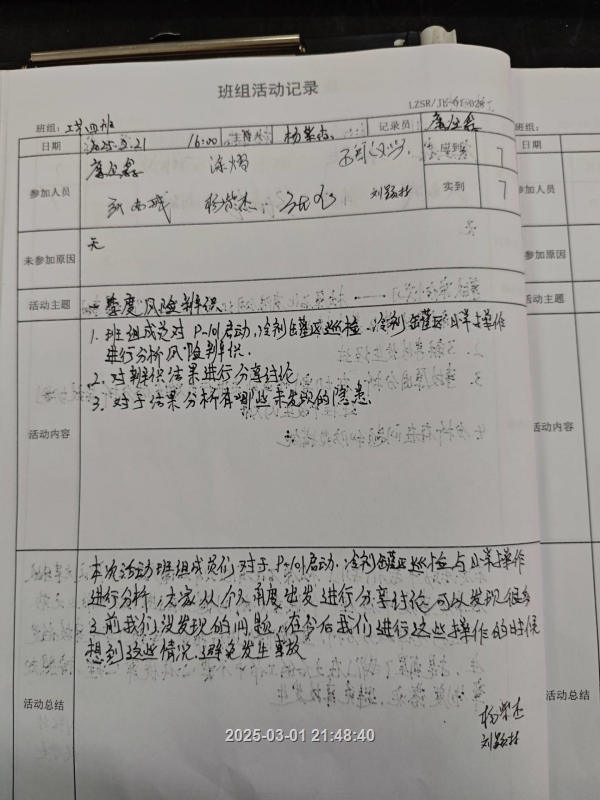 班组活动记录
LZSR/JL
班组: 工艺四班
日期 2025.2.21 16:00 主持人 杨紫杰 记录员
应到 7
参加人员
杨紫杰 刘
实到 7
未参加原因 无
活动主题 一季度风险辨识
1. 班组成员对P-101启动、冷剂罐区巡检、冷剂罐区日常操作
进行分析风险辨识.
2. 对辨识结果进行分享讨论
3. 对于结果分析有哪些未发现的隐患.
活动内容
本次活动班组成员们对于P-101启动、冷剂罐区巡检与日常操作
进行分析,大家从个人角度出发进行分享讨论可以发现很多
之前我们没发现的问题,在今后我们进行这些操作的时候
想到这些情况避免发生事故
活动总结
杨紫杰
刘
班组:
日期
参加人员
未参加原因
活动主题
活动内容
活动总结
2025-03-01 21:48:40